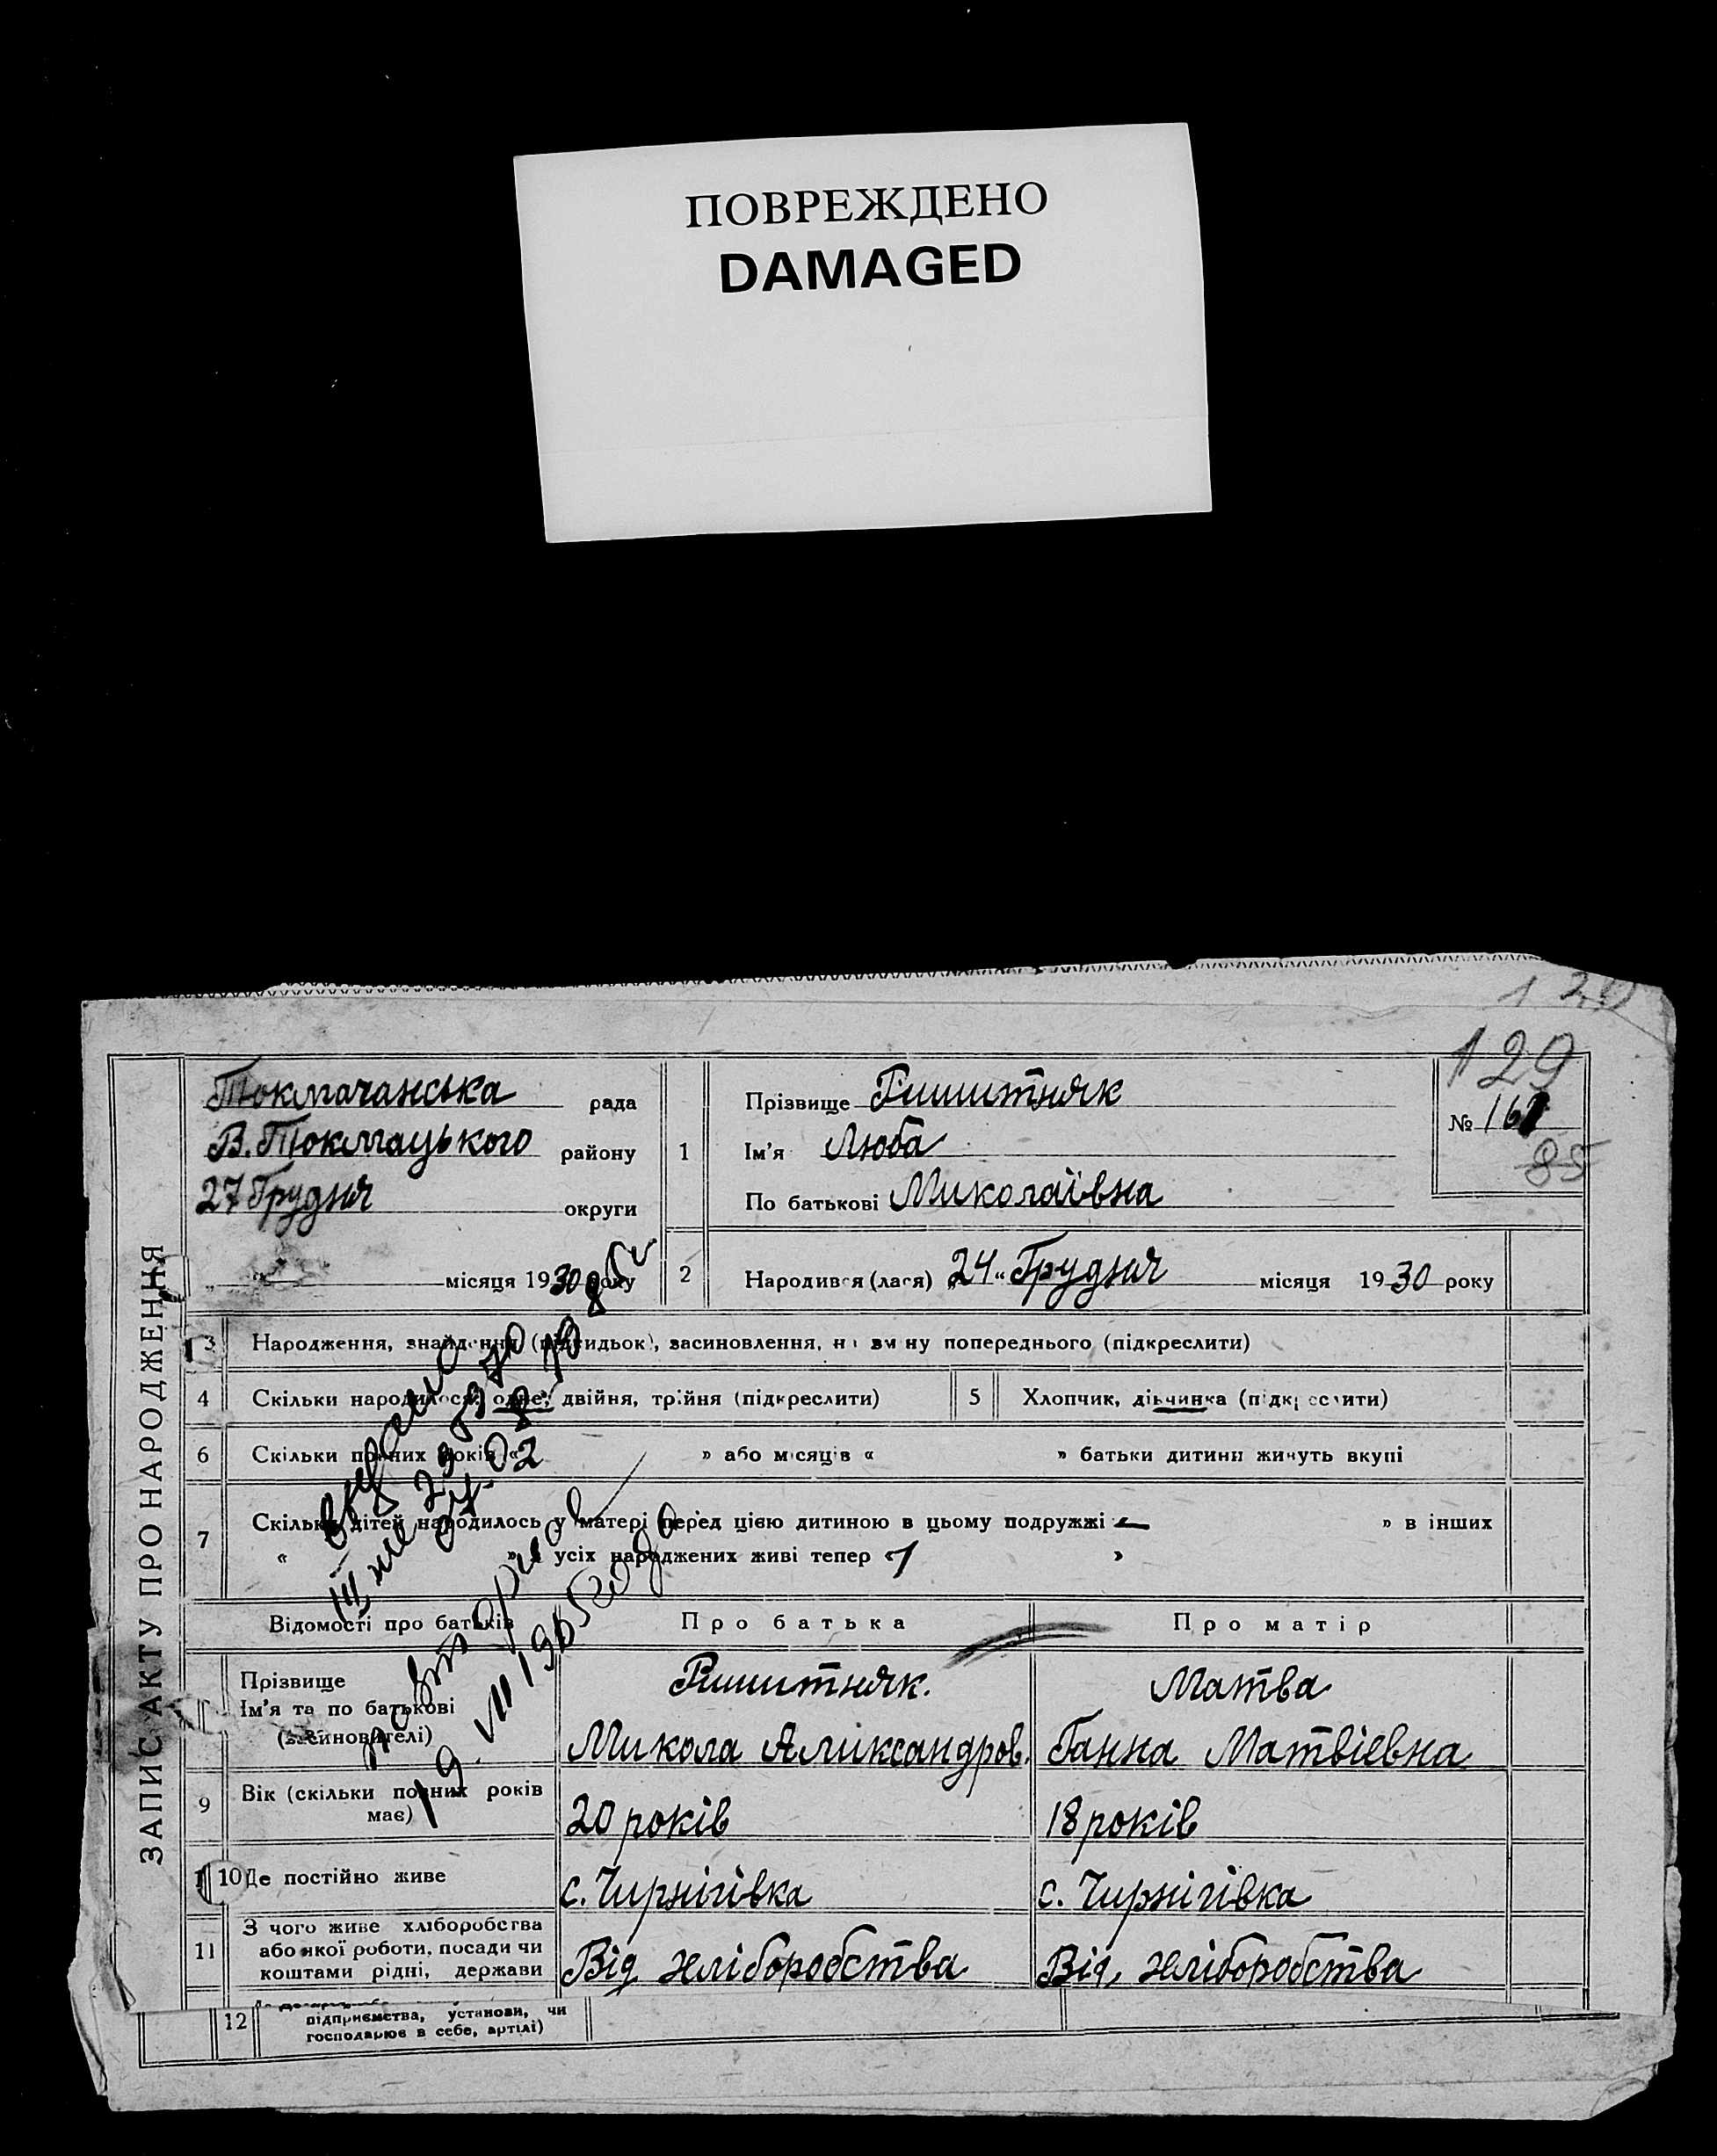 ПОВРЕЖДЕНО
DAMAGED
120
129
ЗАПИС АКТУ ПРО НАРОДЖЕННЯ
Токмачанська рада
В. Токмацького району
27 Грудня округи
місяця 1930 року
1
Прізвище Ришитняк
Ім'я Люба
По батькові Миколаївна
№ 167
85
2
Народився (лася) „24" Грудня місяця 1930 року
3 Народження, знайдення (підкидьок), засиновлення, на зміну попереднього (підкреслити)
4 Скільки народилося: одне, двійня, трійня (підкреслити)
5 Хлопчик, дівчинка (підкреслити)
6 Скільки повних років « » або місяців « » батьки дитини живуть вкупі
7 Скільки дітей народилось у матері перед цією дитиною в цьому подружжі « – » в інших
« » з усіх народжених живі тепер «1 »
видано
19. VII 1965 года
Відомості про батьків
Про батька
Про матір
Прізвище
Ім'я та по батькові
(засиновителі)
Ришитняк.
Микола Аликсандров.
Матва
Ганна Матвієвна
9 Вік (скільки повних років має)
20 років
18 років
10 Де постійно живе
с. Чирнігівка
с. Чирнігівка
11 З чого живе хліборобства
або якої роботи, посади чи
коштами рідні, держави
Від хліборобства
Від, хліборобства
12
підприємства, установи, чи
господарює в себе, артілі)